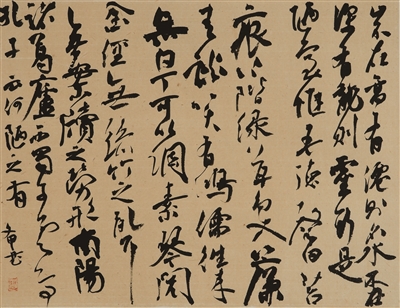 山不在高有仙則名水不
深有龍則靈斯是
陋室惟吾德馨苔
痕上階綠草色入簾
青談笑有鴻儒往來
無白丁可以調素琴閱
金經無絲竹之亂耳
無案牘之勞形南陽
諸葛廬西蜀子雲亭
孔子云何陋之有